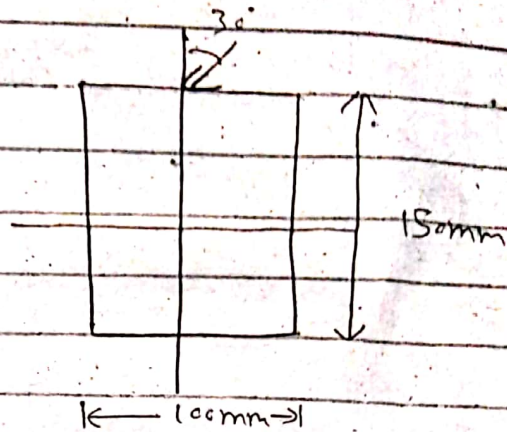 30°
150mm
100mm